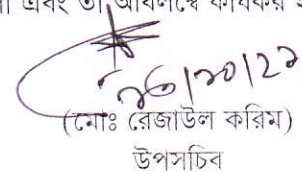 এবং তা অবিলম্বে কার্যকর
১৬/১০/২১
(মোঃ রেজাউল করিম)
উপসচিব